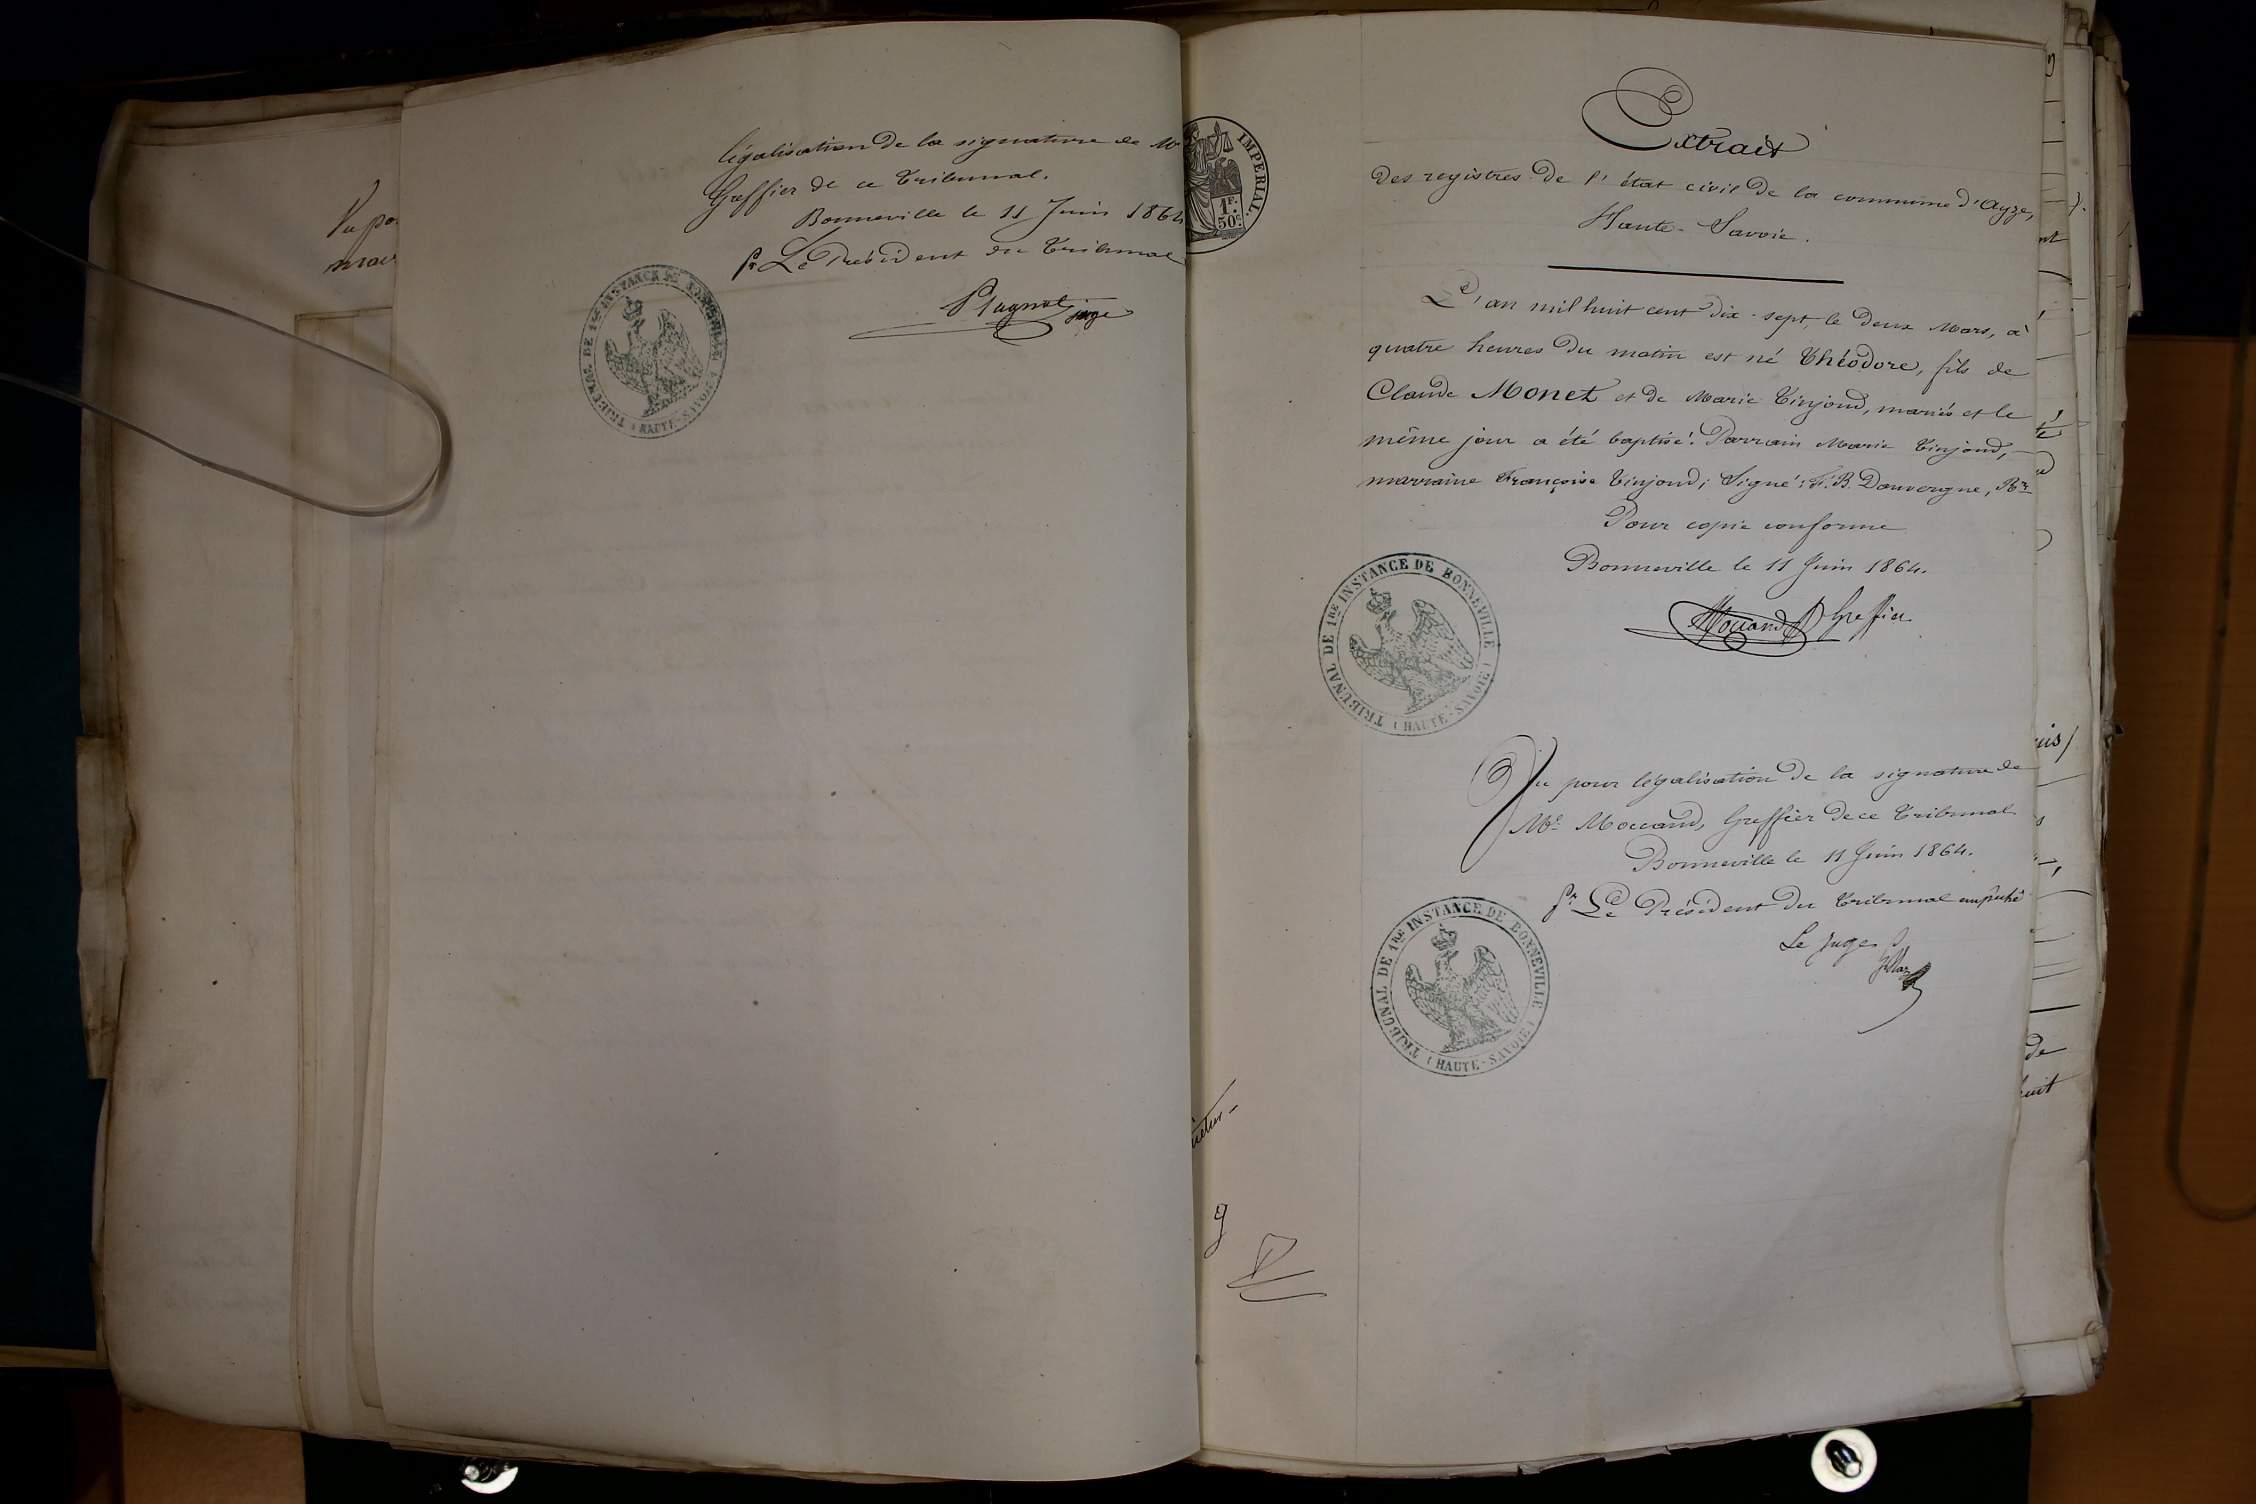 Vu po
légalisation de la signature de Mr
Greffier de ce Tribunal.
Bonneville le 11 Juin 1864
pr Le Président du Tribunal
juge
TRIBUNAL DE 1RE INSTANCE DE BONNEVILLE
(HAUTE-SAVOIE)
IMPERIAL.
1F.
50c.
Extrait
des registres de l'état civil de la commune d'Ayze,
Haute-Savoie.
L'an mil huit cent dix-sept, le deux Mars, à
quatre heures du matin est né Théodore, fils de
Claude Monet et de Marie Tinjoud, mariés et le
même jour a été baptisé. Parrain Marie Tinjoud,
marraine Françoise Tinjoud; Signé: F. B. Dauvergne, Rr
Pour copie conforme
Bonneville le 11 Juin 1864.
Moccand Greffier
TRIBUNAL DE 1RE INSTANCE DE BONNEVILLE
(HAUTE-SAVOIE)
Vu pour légalisation de la signature de
Me Moccand, Greffier de ce Tribunal
Bonneville le 11 Juin 1864.
pr Le Président du Tribunal empêché
Le juge
TRIBUNAL DE 1RE INSTANCE DE BONNEVILLE
(HAUTE-SAVOIE)
de